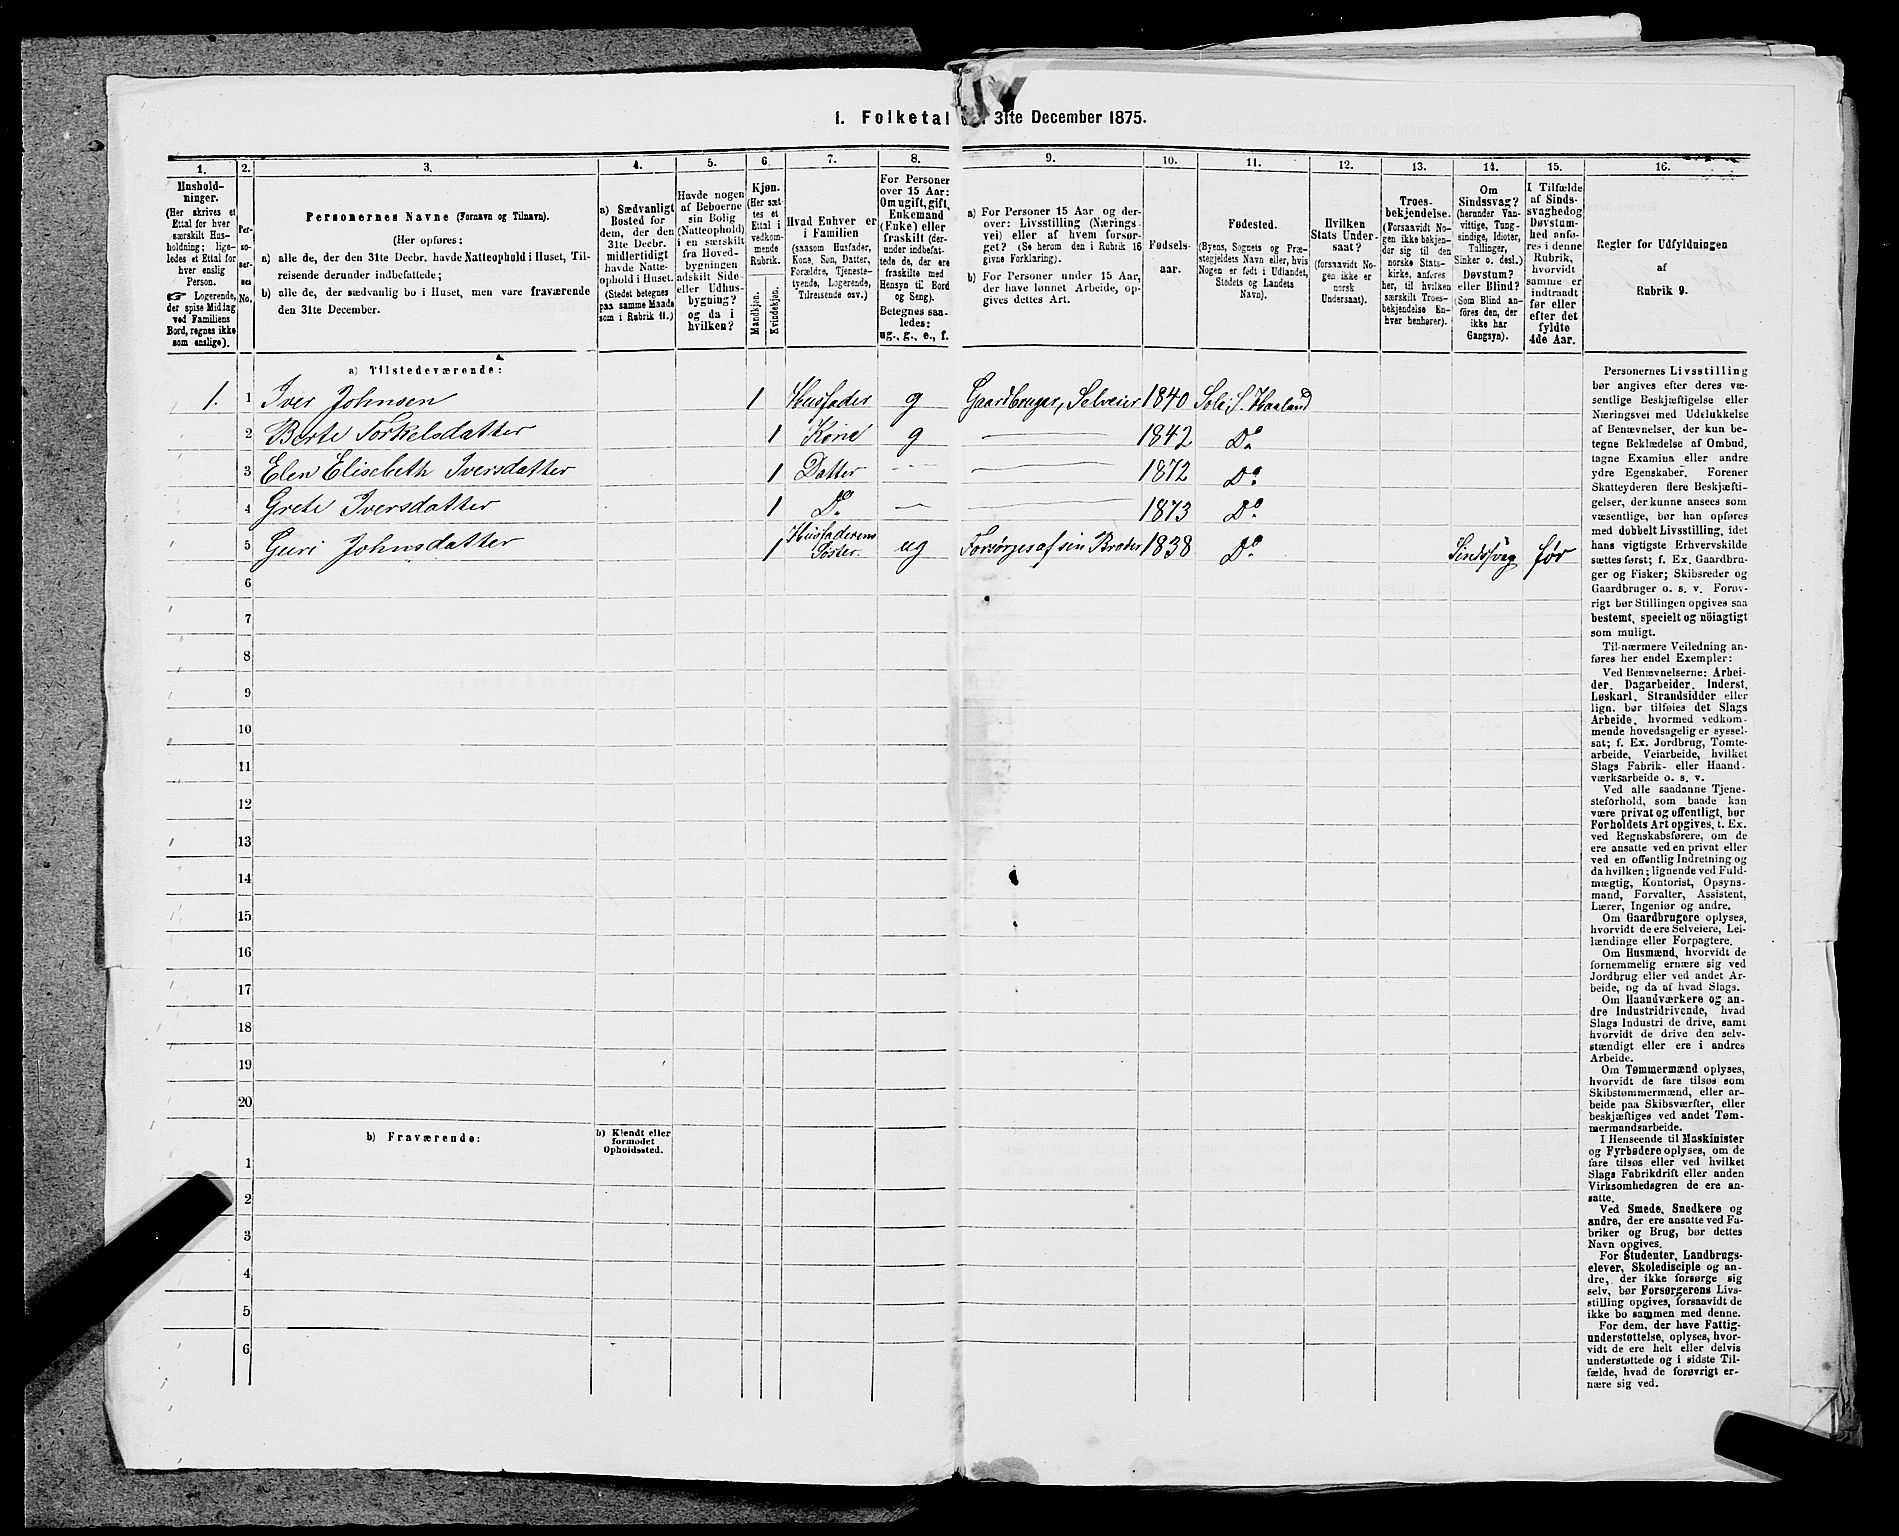 1. Folketal 31te December 1875.
1. 2. 3. 4. 5. 6. 7. 8. 9. 10. 11. 12. 13. 14. 15. 16.
Hushold-
ninger.
(Her skrives et
Ettal for hver
særskilt Hus-
holdning; lige-
ledes et Ettal for
hver enslig
Person.
☞ Logerende,
der spise Middag
ved Familiens
Bord, regnes ikke
som enslige).
Per-
so-
ner-
nes
No.
Personernes Navne (Fornavn og Tilnavn).
(Her opføres:
a) alle de, der den 31te Decbr. havde Natteophold i Huset, Til-
reisende derunder indbefattede;
b) alle de, der sædvanlig bo i Huset, men vare fraværende
den 31te December.
a) Sædvanligt
Bosted for
dem, der den
31te Decbr.
midlertidigt
havde Natte-
ophold i Huset.
(Stedet betegnes
paa samme Maade
som i Rubrik 11.)
Havde nogen
af Beboerne
sin Bolig
(Natteophold)
i en særskilt
fra Hoved-
bygningen
adskilt Side
eller Udhus-
bygning?
og da i
hvilken?
Kjøn.
(Her sæt-
tes et
Ettal i
vedkom-
mende
Rubrik.
Mandkjøn.
Kvindekjøn.
Hvad Enhver er
i Familien
(saasom Husfader,
Kone, Søn, Datter,
Forældre, Tjeneste-
tyende, Logerende,
Tilreisende osv.)
For Personer
over 15 Aar:
Om ugift, gift,
Enkemand
(Enke) eller
fraskilt (der-
under indbefat-
tede de, der ere
fraskilte med
Hensyn til Bord
og Seng).
Betegnes saa-
ledes:
ug., g., e., f.
a) For Personer 15 Aar og der-
over: Livsstilling (Nærings-
vei) eller af hvem forsør-
get? (Se herom den i Rubrik 16
givne Forklaring).
b) For Personer under 15 Aar,
der have lønnet Arbeide, op-
gives dettes Art.
Fødsels-
aar.
Fødested.
(Byens, Sognets og Præ-
stegjeldets Navn eller, hvis
Nogen er født i Udlandet,
Stedets og Landets
Navn).
Hvilken
Stats Under-
saat?
(forsaavidt No-
gen ikke er
norsk
Undersaat).
Troes-
bekjendelse.
(Forsaavidt No-
gen ikke bekjen-
der sig til den
norske Stats-
kirke, anføres
her, til hvilken
særskilt Troes-
bekjendelse En-
hver henhører).
Om
Sindssvag?
(herunder Van-
vittige, Tung-
sindige, Idioter,
Tallinger,
Sinker o. desl.)
Døvstum?
eller Blind?
(Som Blind an-
føres den, der
ikke har
Gangsyn).
I Tilfælde
af Sinds-
svaghed og
Døvstum-
hed anfø-
res i denne
Rubrik,
hvorvidt
samme er
indtraadt
før eller
efter det
fyldte
4de Aar.
Regler for Udfyldningen
af
Rubrik 9.
a) Tilstedeværende:
1. 1 Iver Johnsen 1 Husfader g Gaardbruger, Selveier 1840 Sole S. Haaland
2 Berte Torkelsdatter 1 Kone g — 1842 Do
3 Elen Elisebeth Iversdatter 1 Datter — — 1872 Do
4 Grete Iversdatter 1 Do — — 1873 Do
5 Guri Johnsdatter 1 Husfaderens Søster. ug Forsørges af sin Broder 1838 Do Sindssvag før
6
7
8
9
10
11
12
13
14
15
16
17
18
19
20
b) Fraværende:
b) Kjendt eller
formodet
Opholdssted.
1
2
3
4
5
6
Personernes Livsstilling
bør angives efter deres væ-
sentlige Beskjæftigelse eller
Næringsvei med Udelukkelse
af Benævnelser, der kun be-
tegne Beklædelse af Ombud,
tagne Examina eller andre
ydre Egenskaber. Forener
Skatteyderen flere Beskjæfti-
gelser, der kunne ansees som
væsentlige, bør han opføres
med dobbelt Livsstilling, idet
hans vigtigste Erhvervskilde
sættes først; f. Ex. Gaardbru-
ger og Fisker; Skibsreder og
Gaardbruger o. s. v. Forøv-
rigt bør Stillingen opgives saa
bestemt, specielt og nöiagtigt
som muligt.
Til nærmere Veiledning an-
føres her endel Exempler:
Ved Benævnelserne: Arbei-
der, Dagarbeider, Inderst,
Løskarl, Strandsidder eller
lign. bør tilføies det Slags
Arbeide, hvormed vedkom-
mende hovedsagelig er syssel-
sat; f. Ex. Jordbrug, Tomte-
arbeide, Veiarbeide, hvilket
Slags Fabrik- eller Haand-
værksarbeide o. s. v.
Ved alle saadanne Tjene-
steforhold, som baade kan
være privat og offentligt, bør
Forholdets Art opgives, t. Ex.
ved Regnskabsførere, om de
ere ansatte ved en privat eller
ved en offentlig Indretning og
da hvilken; lignende ved Fuld-
mægtig, Kontorist, Opsyns-
mand, Forvalter, Assistent,
Lærer, Ingeniør og andre.
Om Gaardbrugere oplyses,
hvorvidt de ere Selveiere, Lei-
lændinge eller Forpagtere.
Om Husmænd, hvorvidt de
fornemmelig ernære sig ved
Jordbrug eller ved andet Ar-
beide, og da af hvad Slags.
Om Haandværkere og an-
dre Industridrivende, hvad
Slags Industri de drive, samt
hvorvidt de drive den selv-
stændigt eller ere i andres
Arbeide.
Om Tømmermænd oplyses,
hvorvidt de fare tilsøs som
Skibstømmermænd, eller ar-
beide paa Skibsværfter, eller
beskjæftiges ved andet Tøm-
mermandsarbeide.
I Henseende til Maskinister
og Fyrbødere oplyses, om de
fare tilsøs eller ved hvilket
Slags Fabrikdrift eller anden
Virksomhedsgren de ere an-
satte.
Ved Smede, Snedkere og
andre, der ere ansatte ved Fa-
briker og Brug, bør dettes
Navn opgives.
For Studenter, Landbrugs-
elever, Skoledisciple og an-
dre, der ikke forsørge sig
selv, bør Forsørgerens Livs-
stilling opgives, forsaavidt de
ikke bo sammen med denne.
For dem, der have Fattig-
understøttelse, oplyses, hvor-
vidt de ere helt eller delvis
understøttede og i sidste Til-
fælde, hvad de forøvrigt er-
nære sig ved.